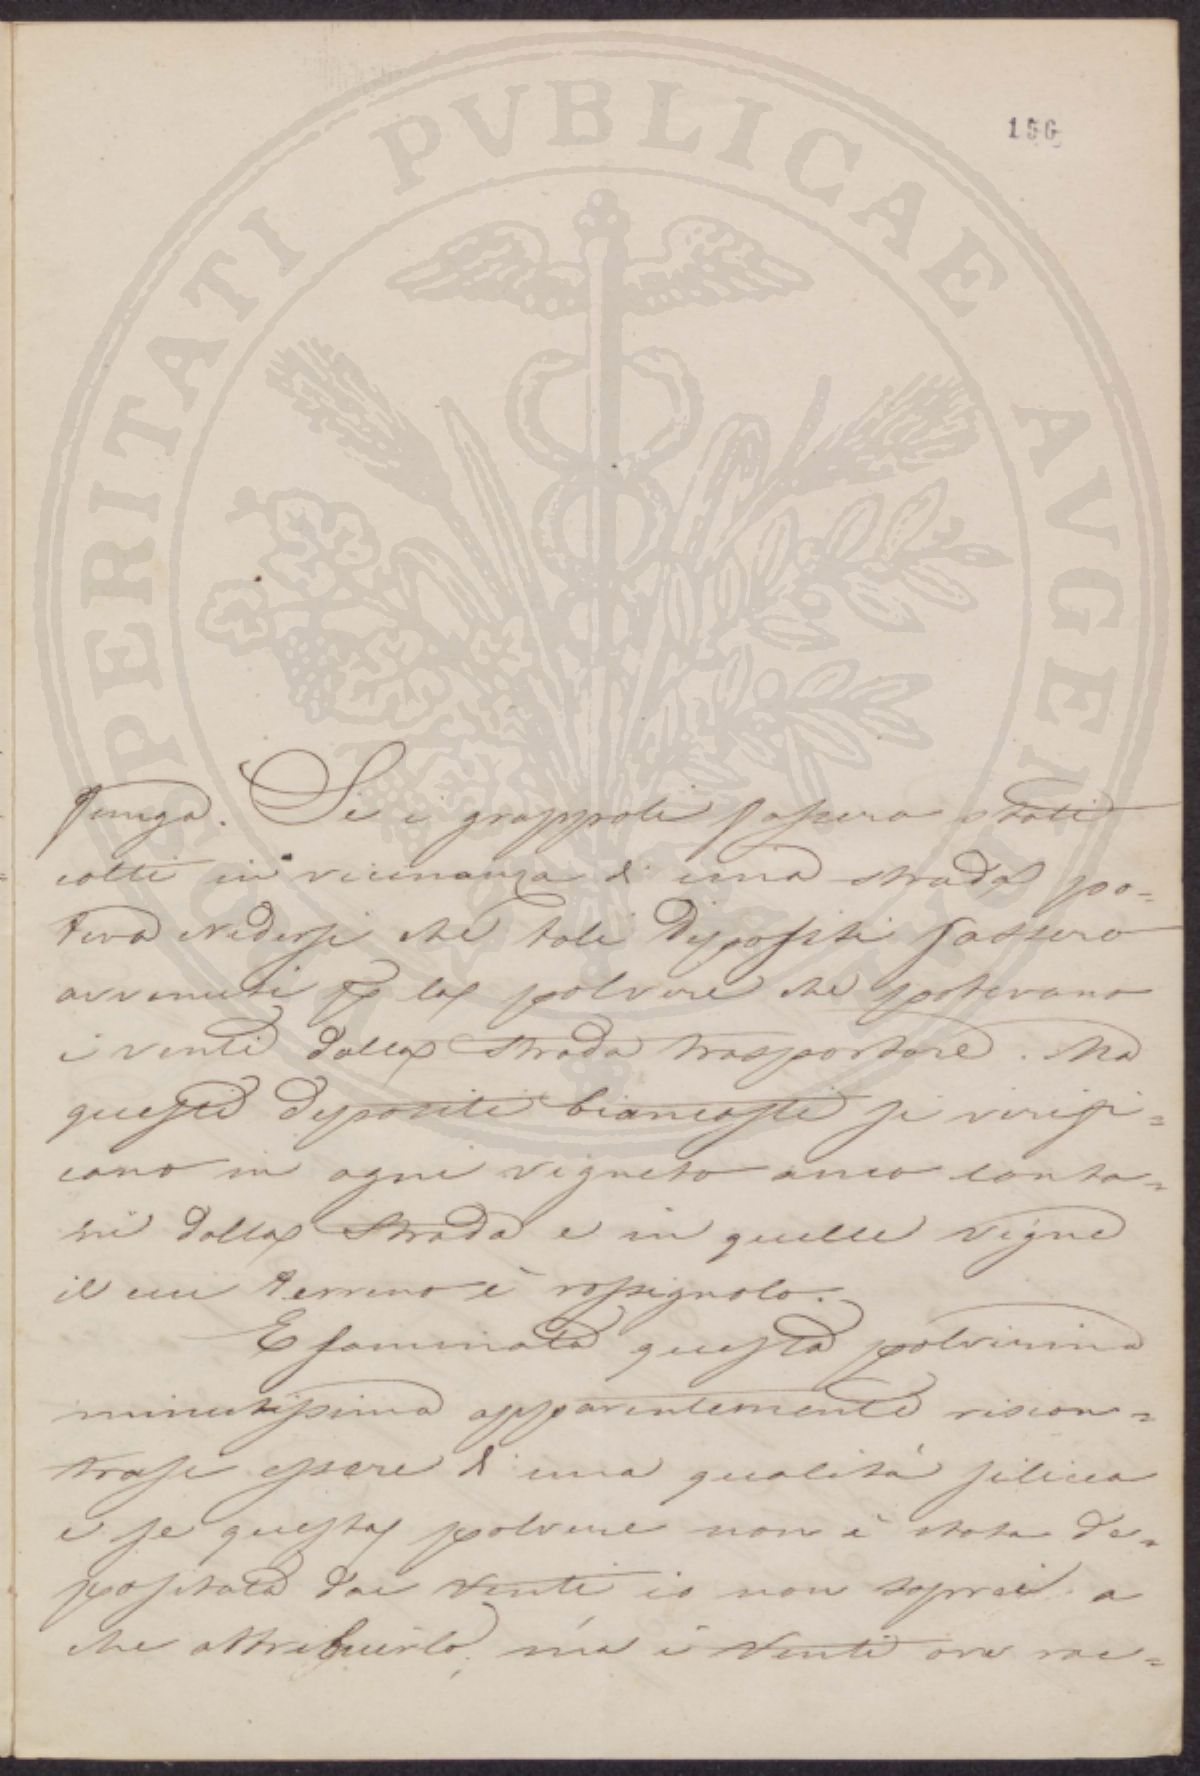 156
PROSPERITATI PVBLICAE AVGENDAE
Se i grappoli fossero stati
colti in vicinanza di una strada po=
teva credersi che tali depositi fossero
avvenuti per la polvere che potevano
i venti dalla strada trasportare. Ma
questi depositi biancastri si verifi=
cano in ogni vigneto anco lonta=
ni dalla strada e in quelle vigne
il cui terreno è rossignolo.
Esaminata questa polverina
minutissima apparentemente riscon=
trasi essere di una qualità silicea
e se questa polvere non è stata de=
positata dai venti io non saprei a
che attribuirlo, ma i venti ove rac=